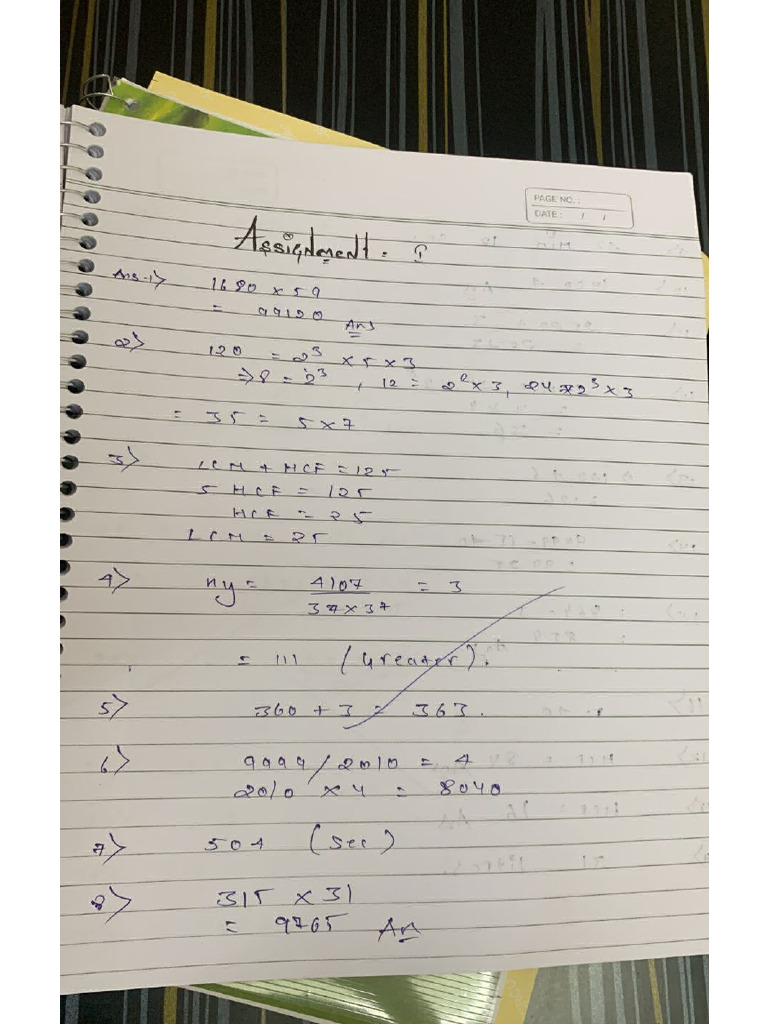 PAGE NO.:
DATE: / /
Assignment - I
Ans-1> 1680 x 59
= 99120 Ans
2> 120 = 2³ x 5 x 3
⇒ 8 = 2³ , 12 = 2² x 3, 24 = 2³ x 3
= 35 = 5 x 7
3> LCM + HCF = 125
5 HCF = 125
HCF = 25
LCM = 25
4> ny = 4107 / 37 x 37 = 3
= 111 (Greater).
5> 360 + 3 = 363.
6> 9999 / 2010 = 4
2010 x 4 = 8040
7> 504 (Sec)
8> 315 x 31
= 9765 An